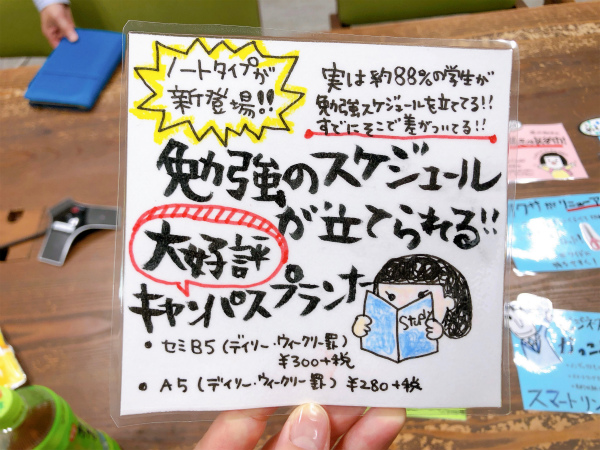 ノートタイプが
新登場!!
実は約88%の学生が
勉強スケジュールを立ててる!!
すでにそこで差がついてる!!
勉強のスケジュール
が立てられる!!
大好評
キャンパスプランナー
Study
• セミB5(デイリー・ウィークリー罫)
¥300+税
• A5(デイリー・ウィークリー罫)¥280+税
スマートリン